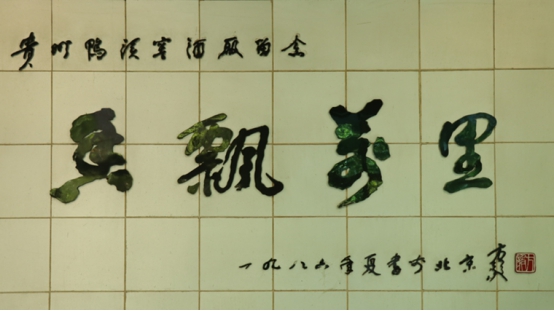 贵州鸭溪窖酒厂留念
香飘万里
一九八六年夏书于北京